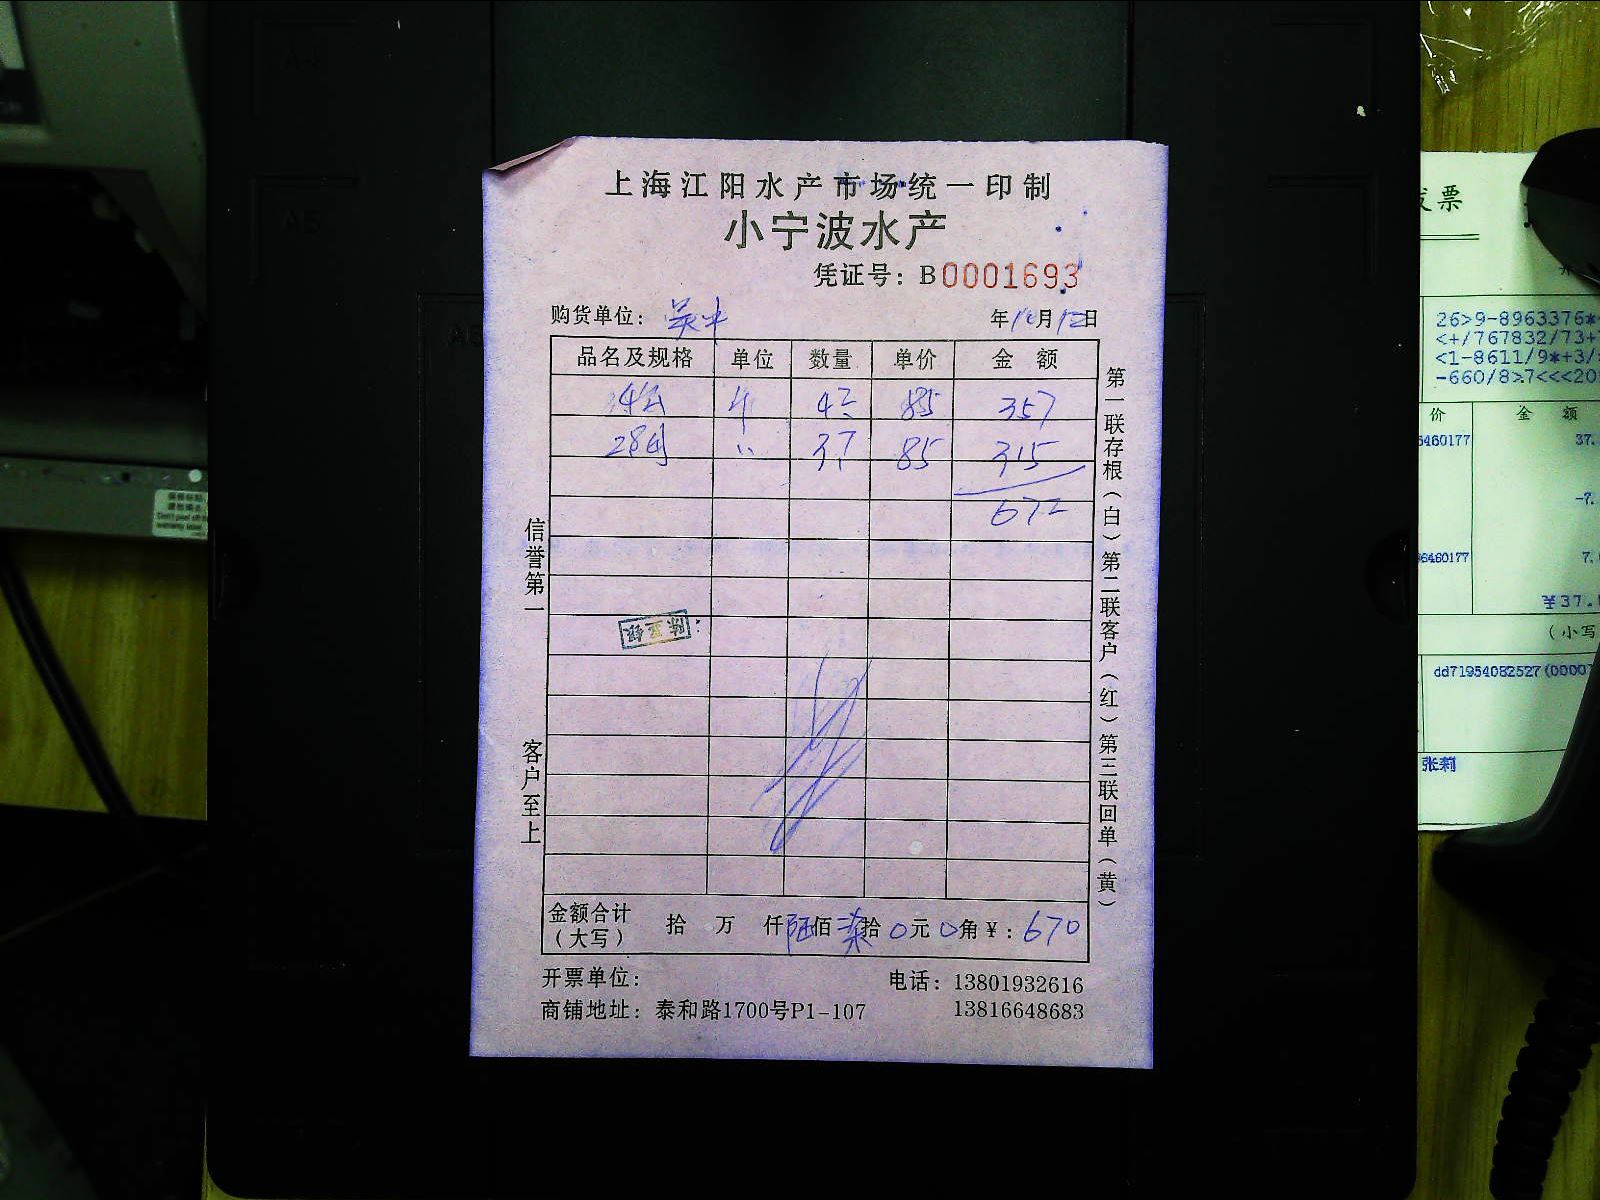 上海江阳水产市场统一印制
小宁波水产
凭证号：B0001693
购货单位：
年10月12日
品名及规格 单位 数量 单价 金额
4公 斤 4.2 85 357
28 3.7 85 315
672
信誉第一
客户至上
第一联存根（白）第二联客户（红）第三联回单（黄）
金额合计（大写） 拾 万 仟陆佰柒拾0元0角¥：670
开票单位：
电话：13801932616
商铺地址：泰和路1700号P1-107
13816648683
发票
26>9-8963376*
<+/767832/73+
<1-8611/9*+3/
-660/8>7<<<20
价 金 额
6460177 37.
-7.
96460177 7.
¥37.
（小写
dd71954082527(0000
张莉
A4
A5